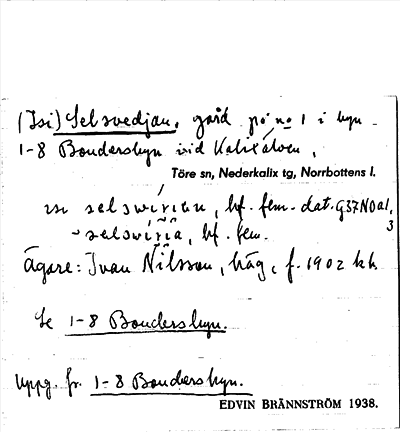 (Isi) Selsvedjan, gård på no 1 i byn
1-8 Bondersbyn vid Kalixälven,
Töre sn, Nederkalix tg, Norrbottens l.
bf. fem. dat. G37N0a1,
3
bf. fem.
Ägare: Ivan Nilsson, häg, f. 1902 kk
Se 1-8 Bondersbyn.
Uppg. fr. 1-8 Bondersbyn.
EDVIN BRÄNNSTRÖM 1938.